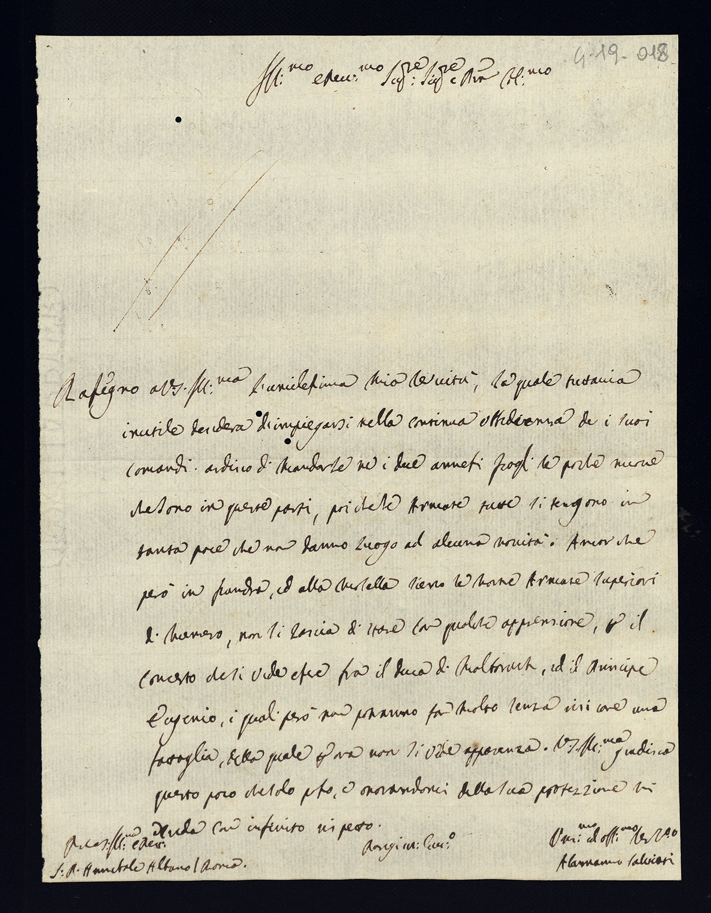 G-19-018
Ill:mo e Rev:mo Sig:re Sig:re e Pron Col:mo
Rassegno a V.S. Ill:ma l'umilissima mia servitù, la quale tuttavia
inutile desidera d'impiegarsi nella continua obbedienza de i suoi
comandi. ardisco di mandarle ne i due annessi fogli le poche nuove
che sono in queste parti, poiche le Armate tutte si tengono in
tanta pace che non danno luogo ad alcuna novità. Ancor che
però in fiandra, ed alla sieno le Armate superiori
di numero, non si lascia di stare con qualche apprensione, p il
concerto che si vede essere fra il Duca di Malboruch, ed il Principe
Eugenio, i quali però non potranno far molto senza una
battaglia, della quale p ora non si vede apparenza. V.S. Ill:ma gradisca
questo poco che solo posso, e onorandomi della sua protezione mi
creda con infinito rispetto.
Di V.S. Ill:ma e Rev:
Parigi
S:r Annibale Albano / Roma.
Um:mo ed obb:mo Ser:
Alamanno Salviati